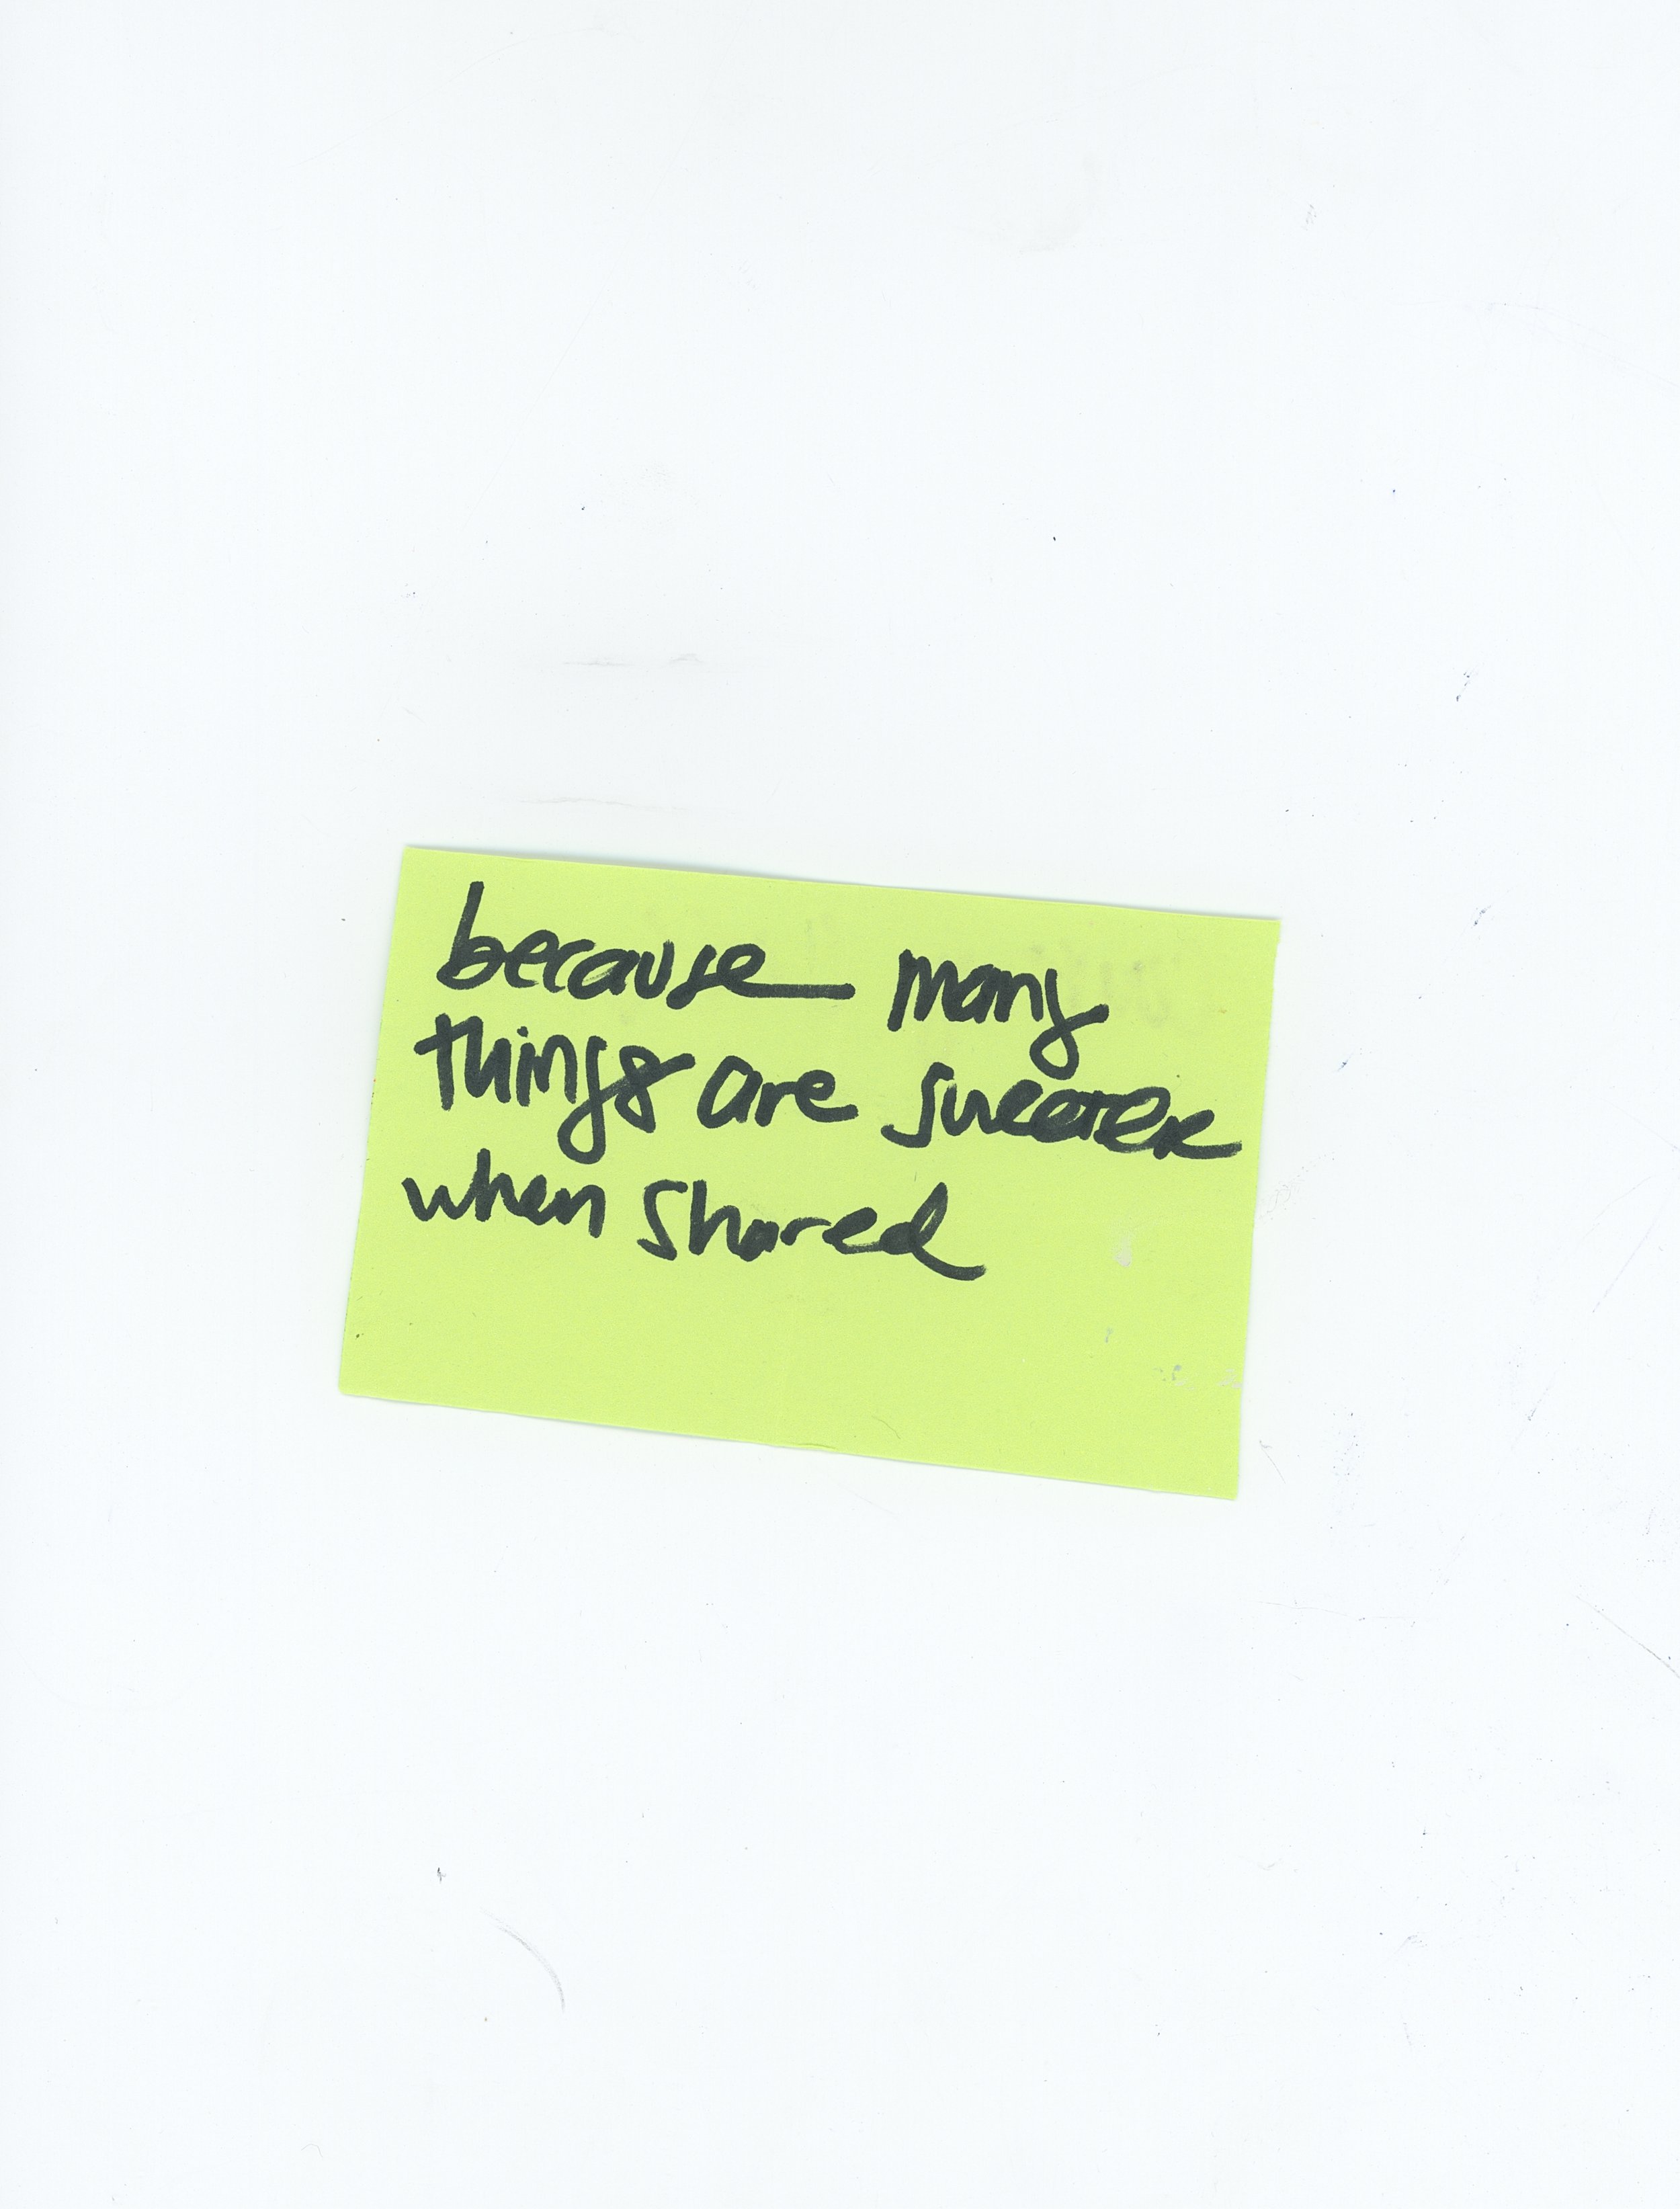 because many
things are sweeter
when shared